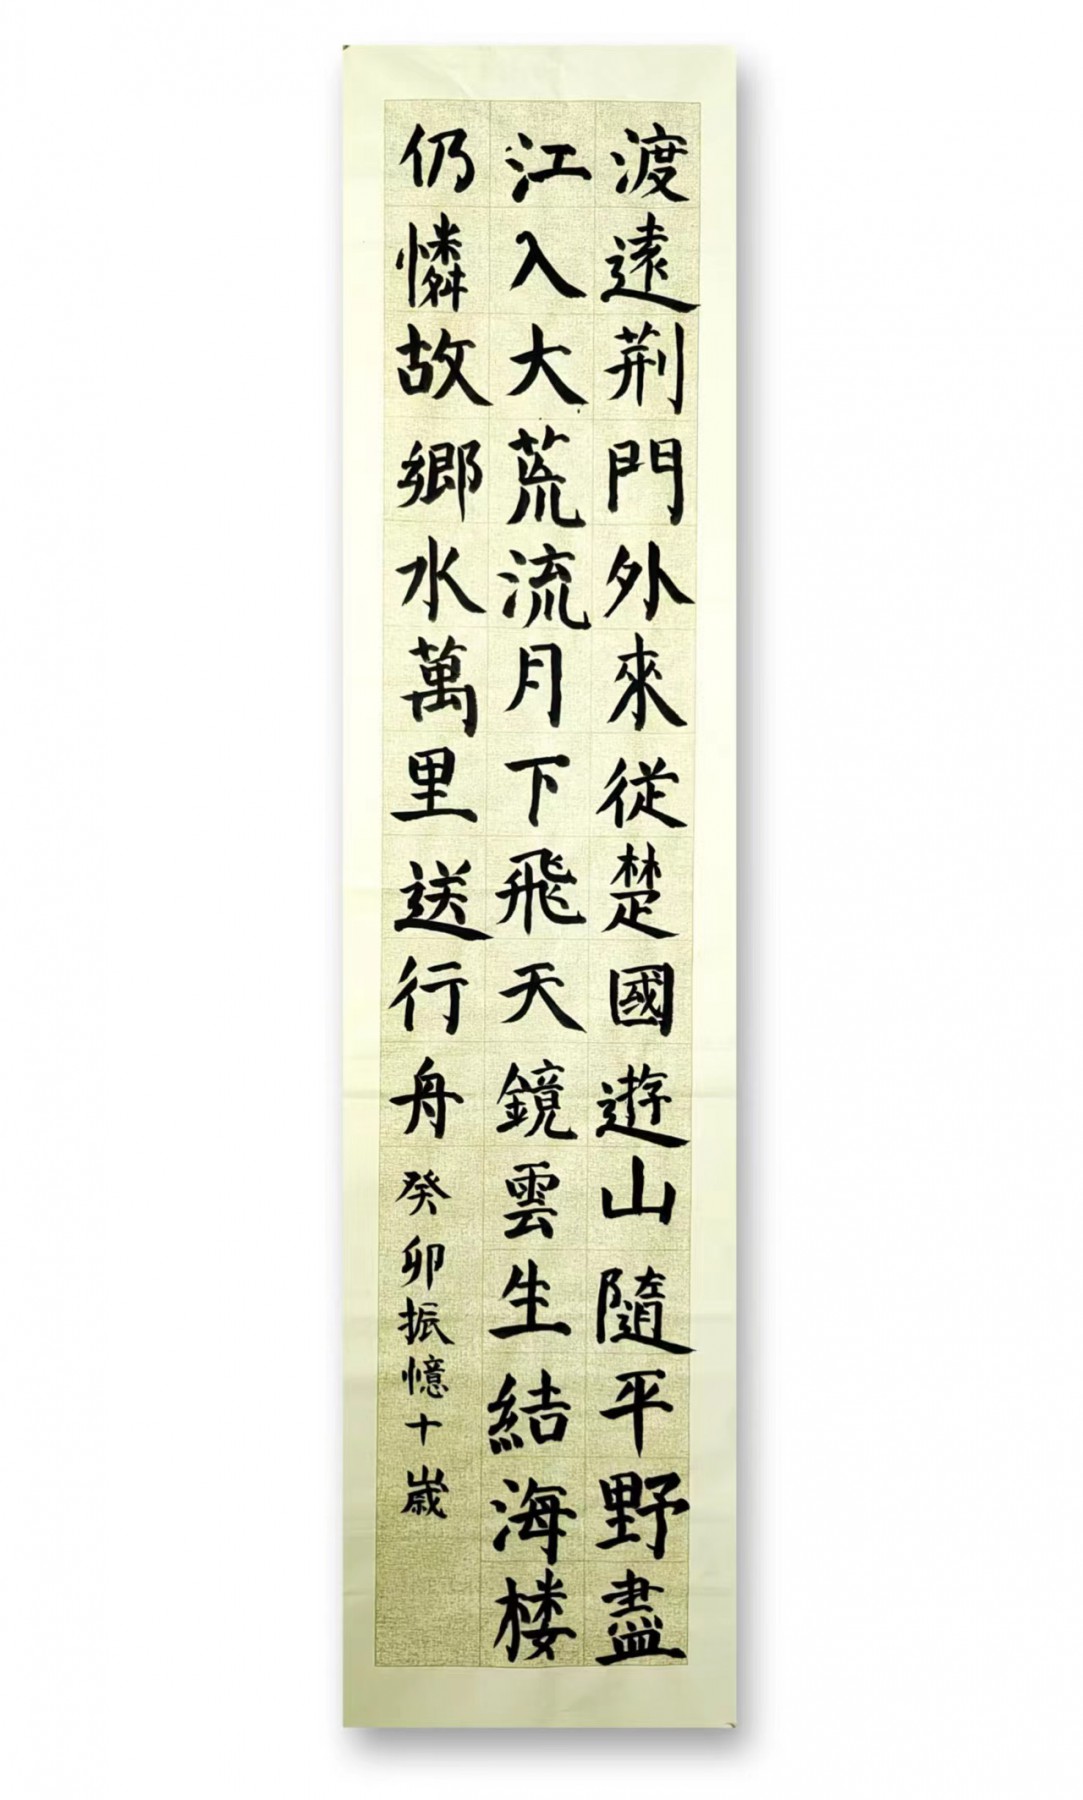 渡遠荊門外來從楚國遊山隨平野盡
江入大荒流月下飛天鏡雲生結海楼
仍憐故鄉水萬里送行舟癸卯振憶十歲